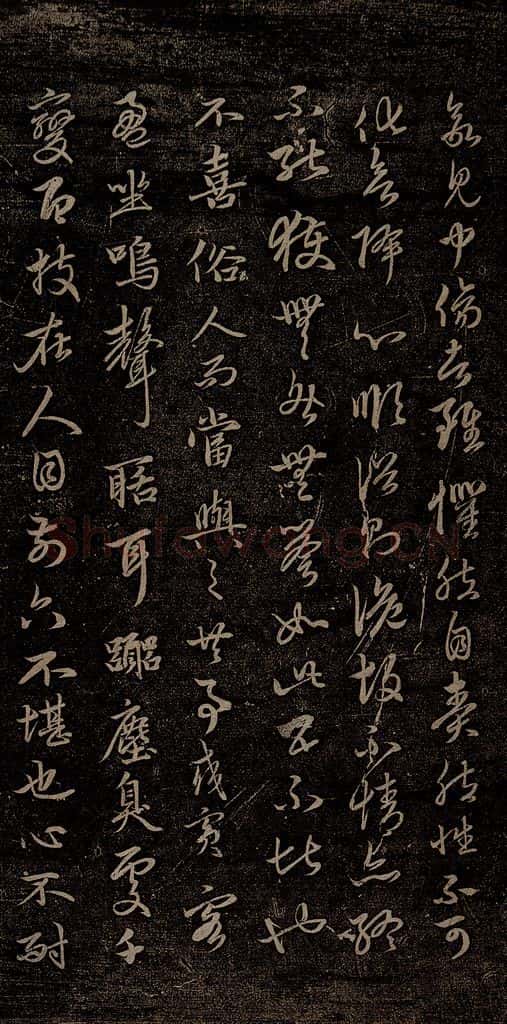 欲見中傷者雖懼然自責然性不可
化欲降心順俗則詭故不情亦終
不能獲無咎無譽如此五不堪也
不喜俗人而當與之共事或賓客
盈坐鳴聲聒耳囂塵臭處千
變百技在人目前六不堪也心不耐
Shufawang.CN